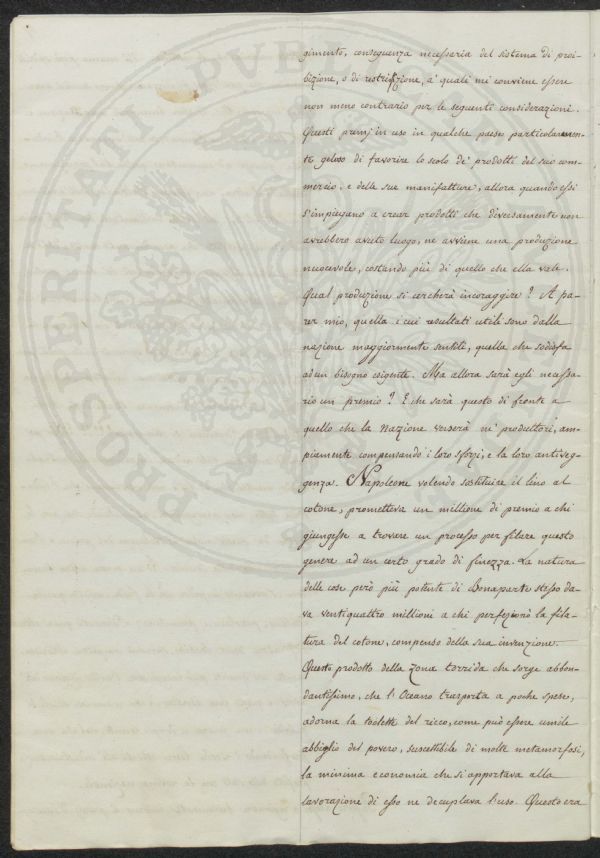 gimento, conseguenza necessaria del sistema di proi-
bizione, o di restrizione, a' quali mi conviene essere
non meno contrario per le seguenti considerazioni.
Questi premj in uso in qualche paese particolarmen-
te geloso di favorire lo scolo de' prodotti del suo com-
mercio, e delle sue manifatture, allora quando essi
s'impiegano a crear prodotti che diversamente non
avrebbero avuto luogo, ne avviene una produzione
nuocevole, costando più di quello che ella vale.
Qual produzione si cercherà incoraggire? A pa-
rer mio, quella i cui resultati utili sono dalla
nazione maggiormente sentiti, quella che sodisfa
ad un bisogno esigente. Ma allora sarà egli necessa-
rio un premio? E che sarà questo di fronte a
quello che la Nazione verserà ne' produttori, am-
piamente compensando i loro sforzi, e la loro antiveg-
genza. Napoleone volendo sostituire il lino al
cotone, prometteva un millione di premio a chi
giungesse a trovare un processo per filare questo
genere ad un certo grado di finezza. La natura
delle cose però più potente di Bonaparte stesso da-
va ventiquattro millioni a chi perfezionò la fila-
tura del cotone, compenso della sua invenzione.
Questo prodotto della zona torrida che sorge abbon-
dantissimo, che l'Oceano trasporta a poche spese,
adorna la toelett del ricco, come può essere umile
abbiglio del povero, suscettibile di molte metamorfosi,
la minima economia che si apportava alla
lavorazione di esso ne decuplava l'uso. Questo era
PROSPERITATI PVBL